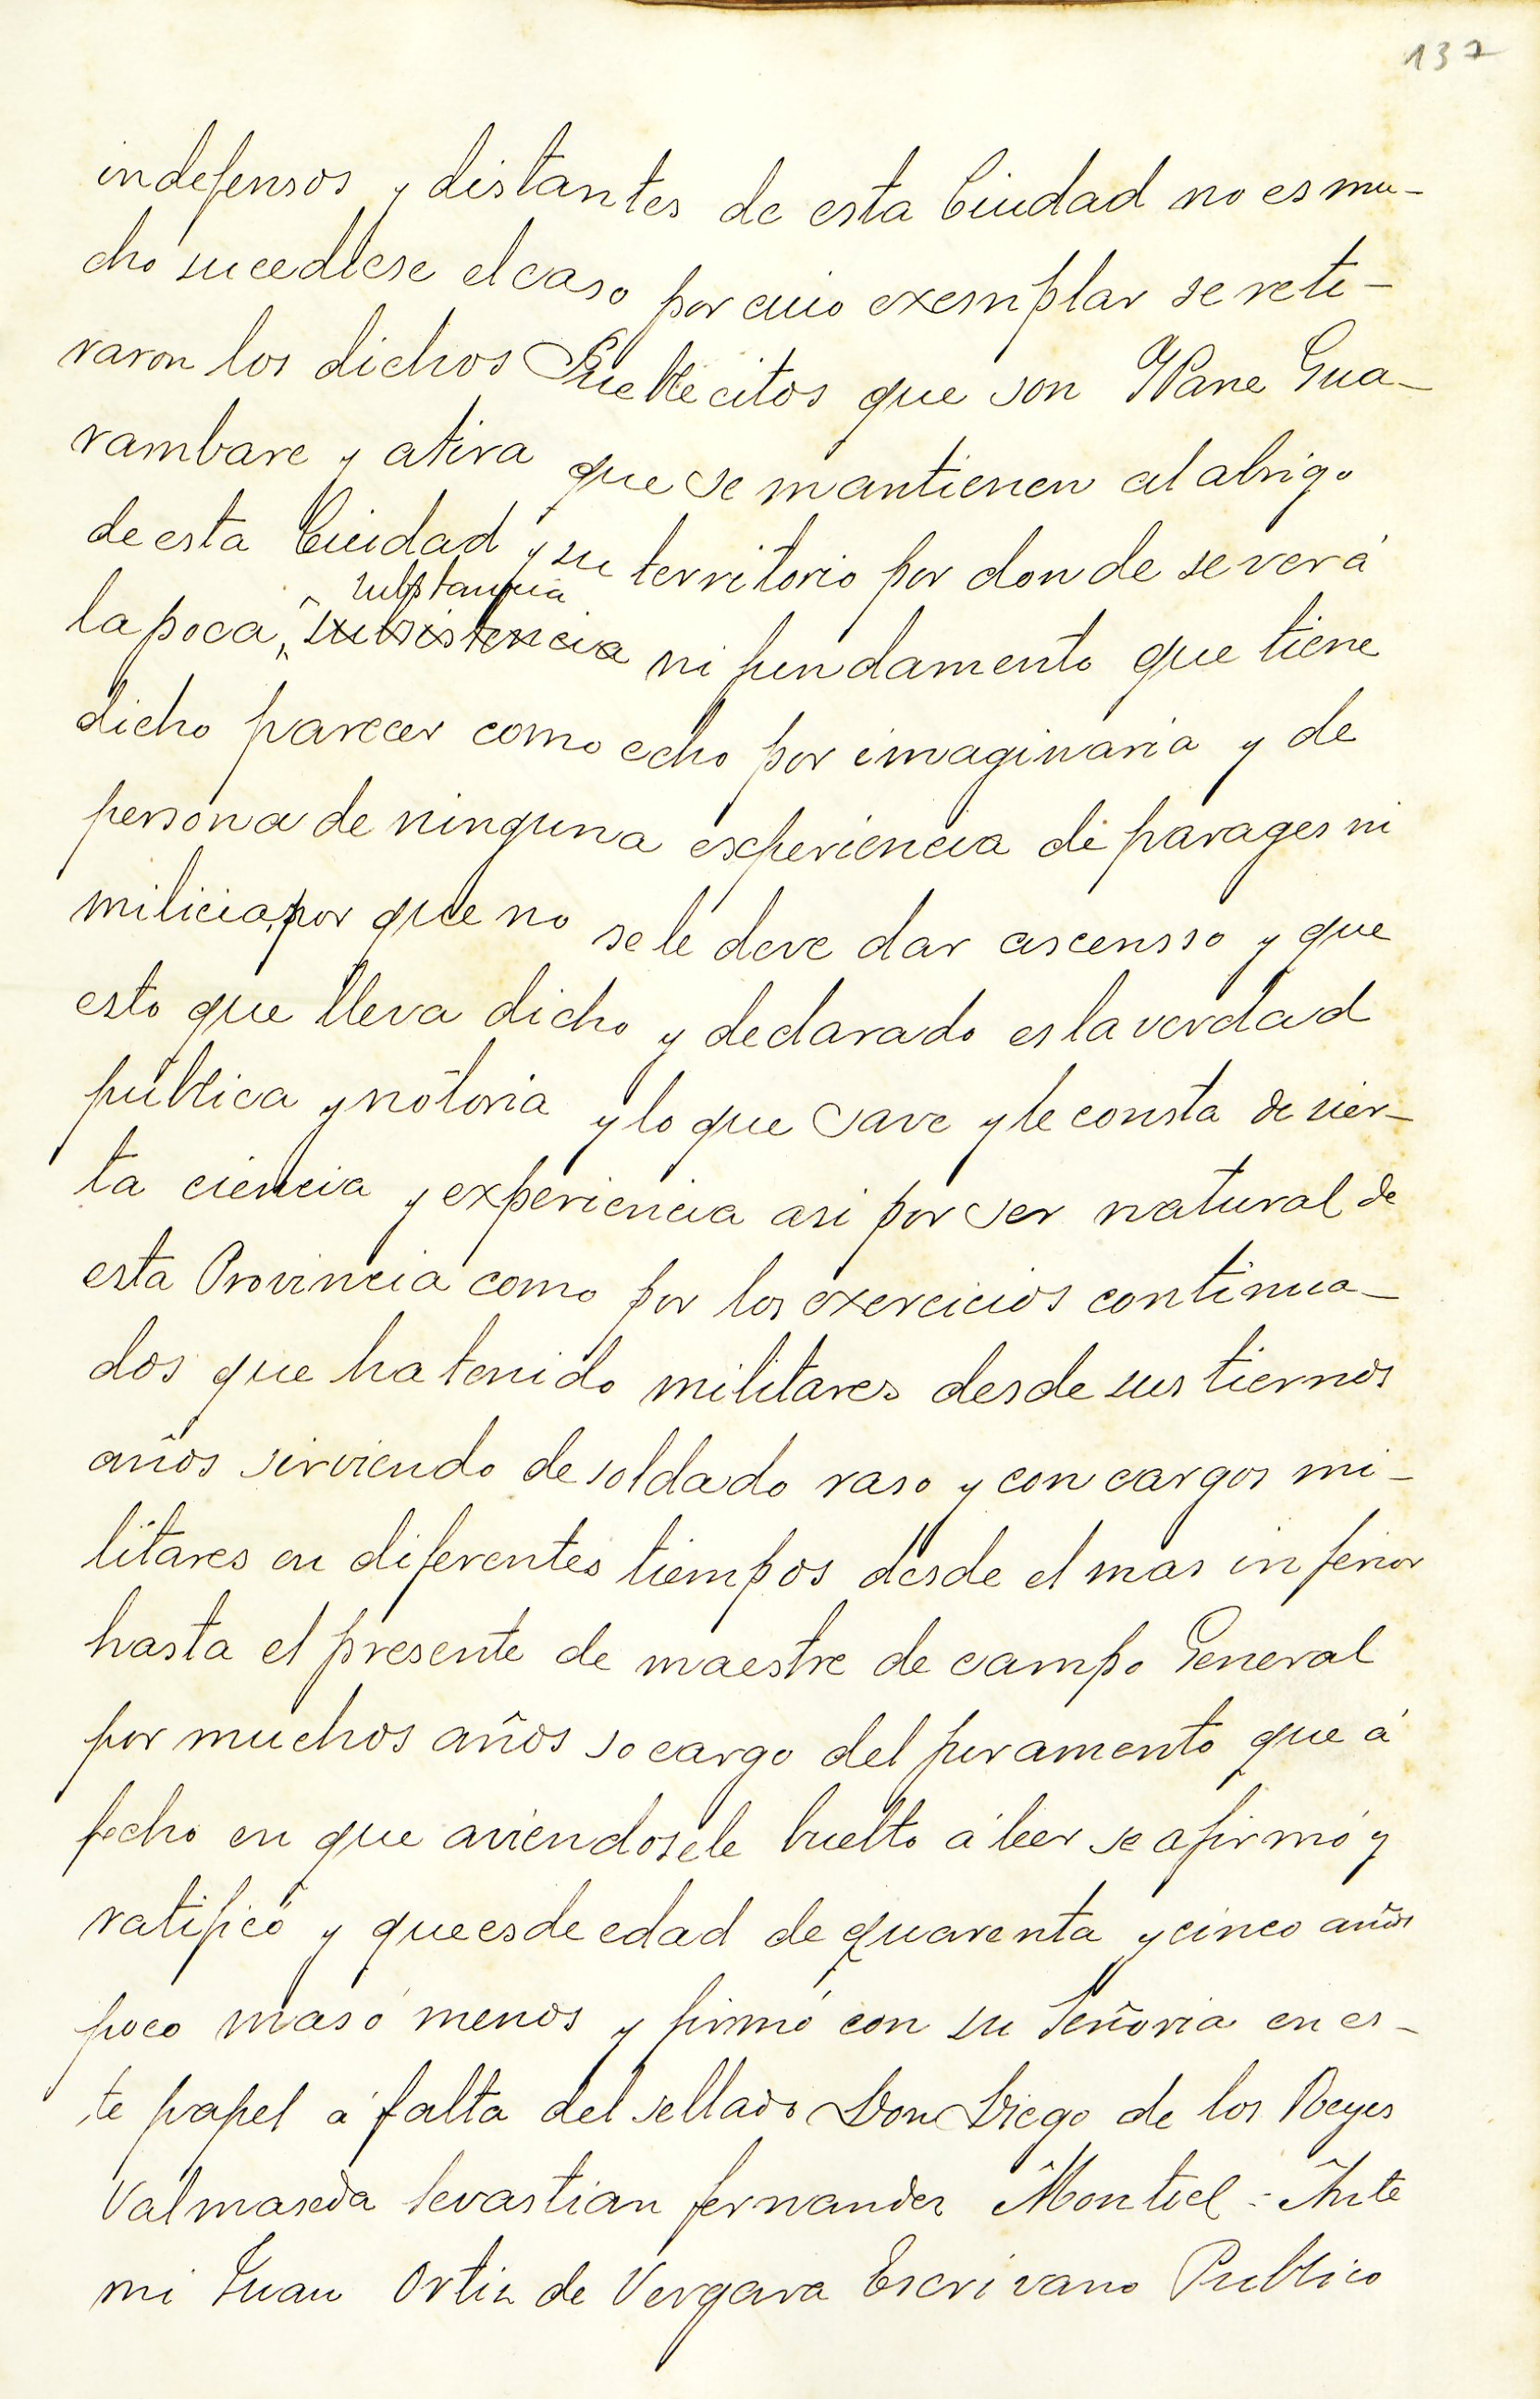 137
indefensos y distantes de esta Ciudad no es mu-
cho sucediese el caso por cuio exemplar se reti-
raron los dichos Pueblecitos que son Ypane Gua-
rambare y atira que se mantienen al abrigo
de esta Ciudad y su territorio por donde se verá
substancia
la poca, subsistencia ni fundamento que tiene
dicho parecer como echo por imaginaria y de
persona de ninguna experiencia de parages ni
milicia, por que no se le deve dar ascensso y que
esto que lleva dicho y declarado es la verdad
pública y notoria y lo que save y le consta de sier-
ta ciencia y experiencia asi por ser natural de
esta Provincia como por los exercicios continua-
dos que ha tenido militares desde sus tiernos
años sirviendo de soldado raso y con cargos mi-
litares en diferentes tiempos desde el mas inferior
hasta el presente de maestre de campo General
por muchos años so cargo del juramento que á
fecho en que aviendosele buelto á leer se afirmó y
ratificó y que es de edad de quarenta y cinco años
poco mas ó menos y firmó con su Señoria en es-
te papel á falta del sellado Don Diego de los Reyes
Valmaseda Sevastian fernandez Montiel = Ante
mi Juan Ortiz de Vergara Escrivano Publico